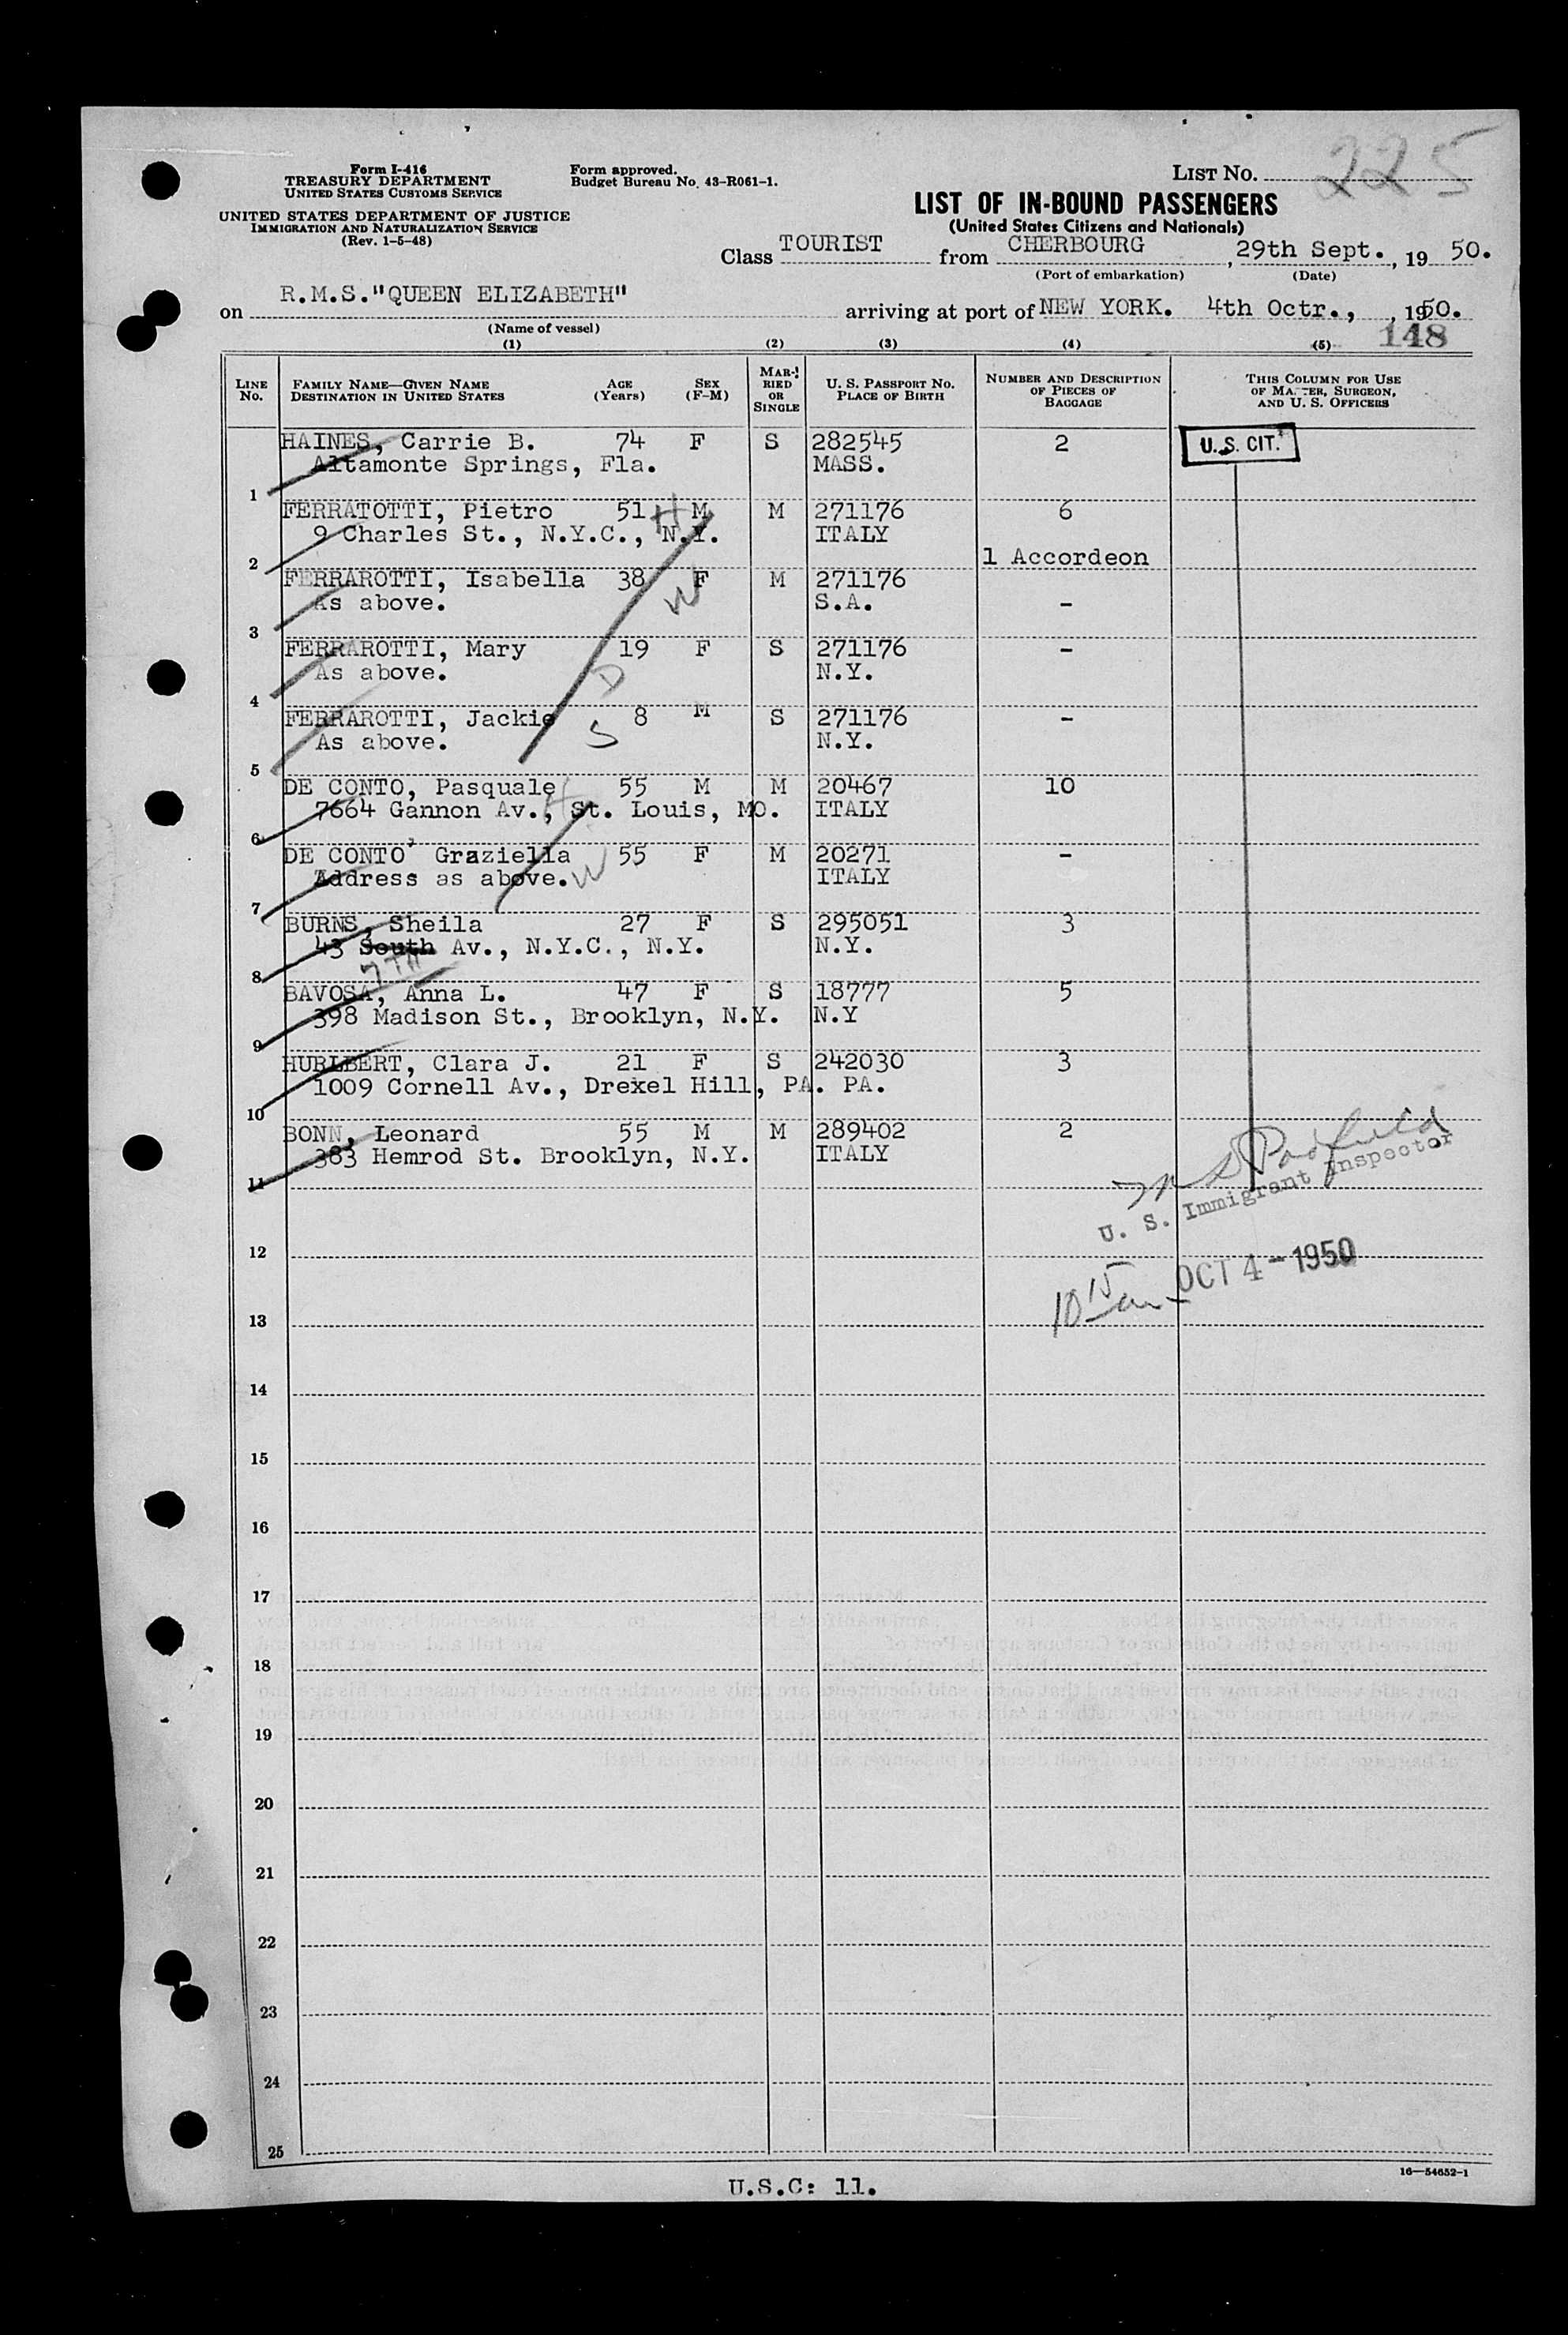 225
Form I-416
TREASURY DEPARTMENT
UNITED STATES CUSTOMS SERVICE
Form approved.
Budget Bureau No. 43-R061-1.
LIST NO.
UNITED STATES DEPARTMENT OF JUSTICE
IMMIGRATION AND NATURALIZATION SERVICE
(Rev. 1-5-48)
LIST OF IN-BOUND PASSENGERS
(United States Citizens and Nationals)
Class TOURIST from CHERBOURG, 29th Sept., 19 50.
(Port of embarkation) (Date)
on R.M.S."QUEEN ELIZABETH" arriving at port of NEW YORK. 4th Octr., , 1950.
(Name of vessel)
148
(1) (2) (3) (4) (5)
LINE NO. FAMILY NAME—GIVEN NAME DESTINATION IN UNITED STATES AGE (Years) SEX (F-M) MARRIED OR SINGLE U. S. PASSPORT NO. PLACE OF BIRTH NUMBER AND DESCRIPTION OF PIECES OF BAGGAGE THIS COLUMN FOR USE OF MASTER, SURGEON, AND U. S. OFFICERS
HAINES, Carrie B. 74 F S 282545 2 U.S. CIT.
Altamonte Springs, Fla. MASS.
1
FERRATOTTI, Pietro 51 H M M 271176 6
9 Charles St., N.Y.C., N.Y. ITALY
2 1 Accordeon
FERRAROTTI, Isabella 38 F M 271176
As above. W S.A. -
3
FERRAROTTI, Mary 19 F S 271176 -
As above. D N.Y.
4
FERRAROTTI, Jackie 8 M S 271176 -
As above. S N.Y.
5
DE CONTO, Pasquale 55 M M 20467 10
7664 Gannon Av., St. Louis, MO. ITALY
H
6
DE CONTO, Graziella 55 F M 20271 -
Address as above. W ITALY
7
BURNS, Sheila 27 F S 295051 3
43 South Av., N.Y.C., N.Y. N.Y.
7TH
8
BAVOSA, Anna L. 47 F S 18777 5
398 Madison St., Brooklyn, N.Y. N.Y
9
HURLBERT, Clara J. 21 F S 242030 3
1009 Cornell Av., Drexel Hill, PA. PA.
10
BONN, Leonard 55 M M 289402 2
383 Hemrod St. Brooklyn, N.Y. ITALY
11
U. S. Immigrant Inspector
12
OCT 4 - 1950
10 15 am
13
14
15
16
17
18
19
20
21
22
23
24
25
16—54652-1
U.S.C: 11.